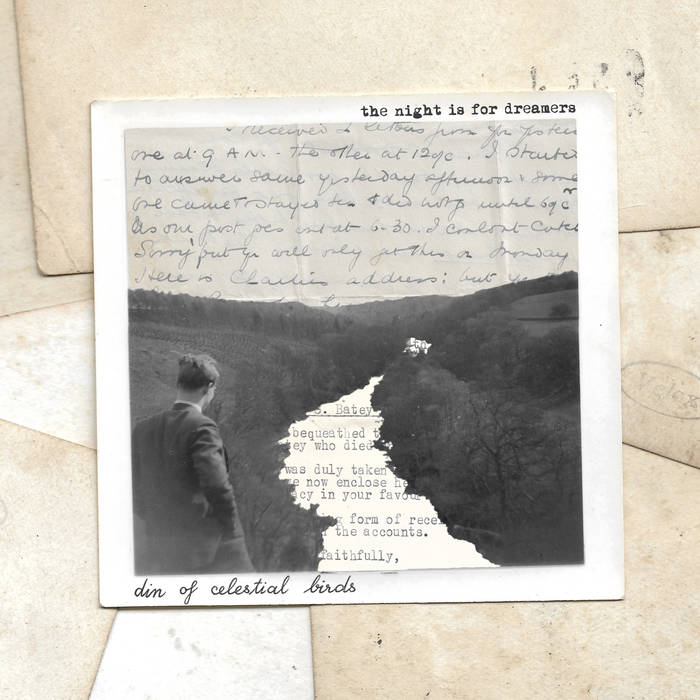 the night is for dreamers
received 2 letters from you
one at 9 AM - the other at 12
to answer same yesterday afternoon & some
one came & stayed tea & did not go until
As one post goes out at 6-30. I couldn't
Sorry but you will only get this on Monday
Here is Charlies address: but
S. Batey
bequeathed
ey who died
was duly taken
e now enclose he
cy in your favou
g form of recei
the accounts.
faithfully,
din of celestial birds